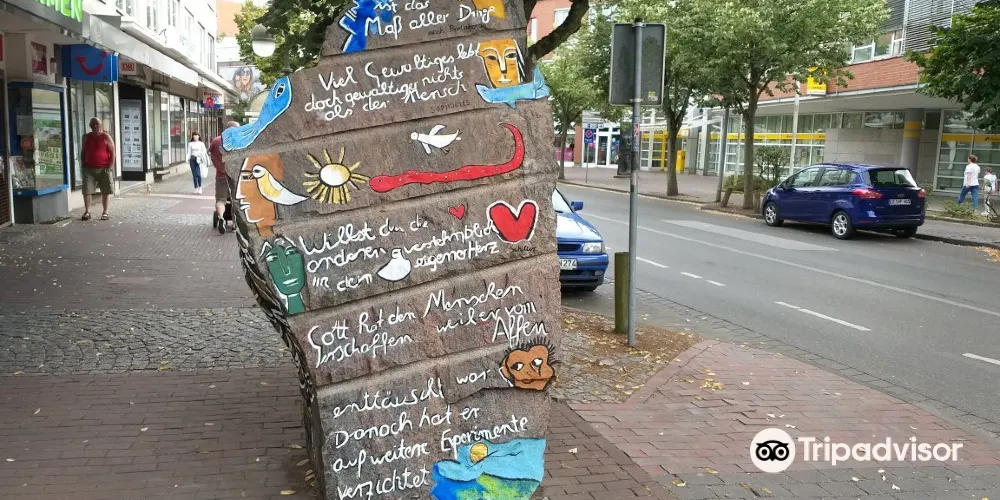 MEN
ist das
Maß aller Dinge
nach Protagoras
Viel Gewaltiges lebt
doch gewaltiger nichts
als der Mensch
SOPHOKLES
Willst du die
anderen verstehn, blick
in dein eigenes Herz
Schiller
Gott hat den Menschen
erschaffen weil er vom
Affen
enttäuscht war
Danach hat er
auf weitere Experimente
verzichtet
Tripadvisor